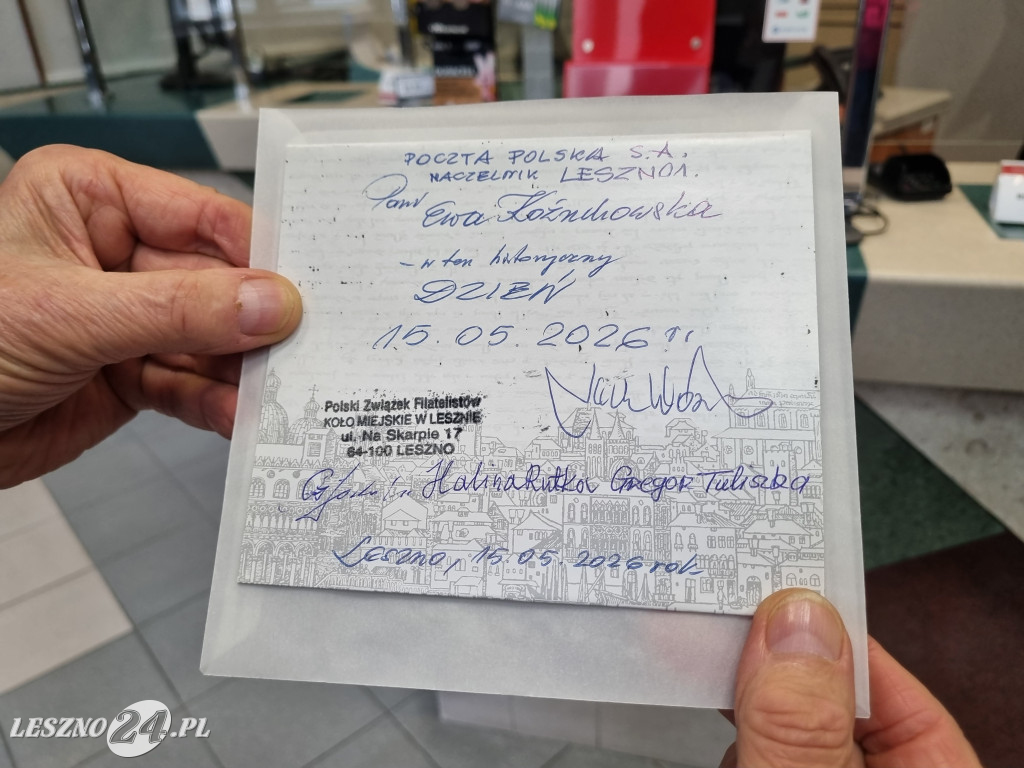 POCZTA POLSKA S.A.
NACZELNIK LESZNO1.
Pani
Ewa Koźuchowska
- w ten historyczny
DZIEŃ
15.05.2026 r.
Polski Związek Filatelistów
KOŁO MIEJSKIE W LESZNIE
ul. Na Skarpie 17
64-100 LESZNO
Halina Rutka Gregor Tuliszka
Leszno, 15.05.2026 rok
LESZNO24.PL